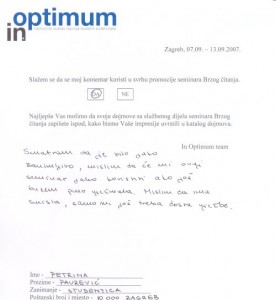 in optimum
Zagreb, 07.09. – 13.09.2007.
Slažem se da se moj komentar koristi u svrhu promocije seminara Brzog čitanja.
DA NE
Najljepše Vas molimo da svoje dojmove za službenog dijela seminara Brzog
čitanja zapišete ispod, kako bismo Vaše impresije uvrstili u katalog dojmova.
In Optimum team
Smatram da je bilo jako
zanimljivo, mislim da će mi ovaj
seminar jako koristiti ako još
budem puno vježbala. Mislim da ima
smisla, samo mi još treba dosta vježbe.
Ime - PETRINA
Prezime - PAVREVIĆ
Zanimanje - STUDENTICA
Poštanski broj i mjesto - 10 000 ZAGREB